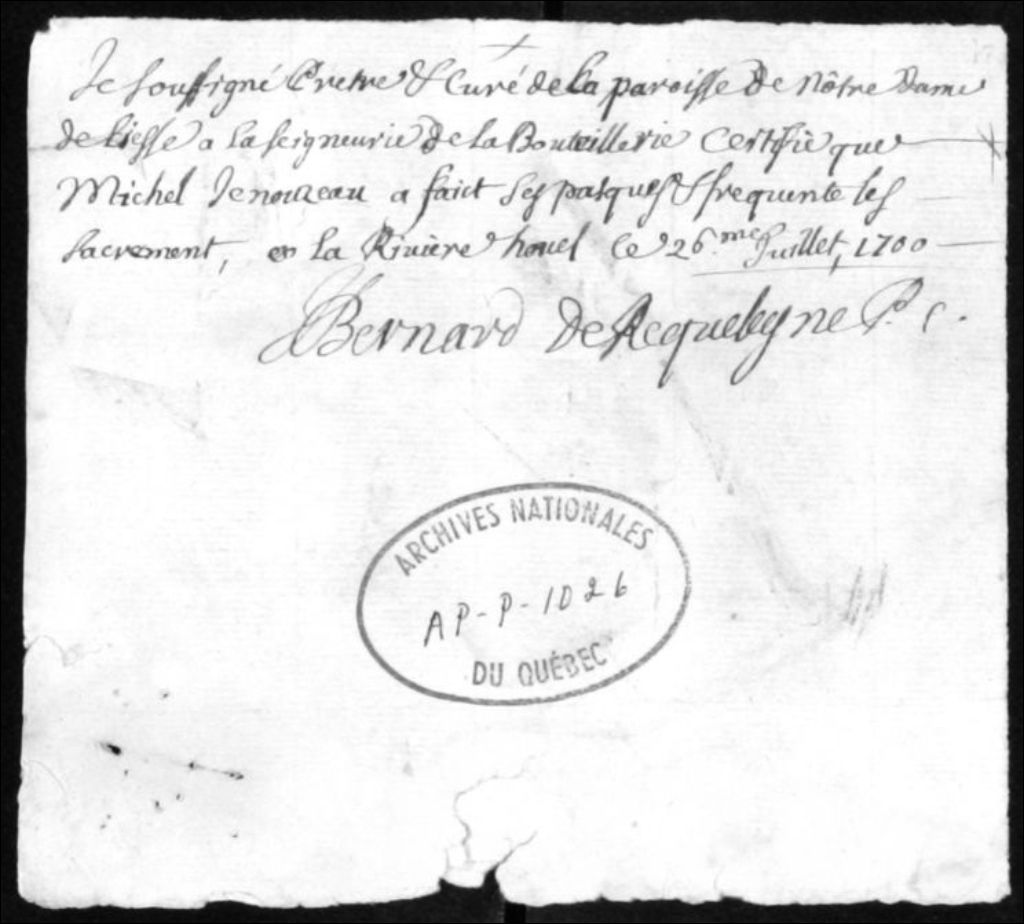 Je soussigné Pretre & Curé de la paroisse de nôtre dame
de liesse a la seigneurie de la Bouteillerie Certifie que
Michel Jenouzeau a faict ses pasques & frequente les
sacrement, en la Rivière houel ce 26.me Juillet, 1700
Bernard De Requeleyne P. c.
ARCHIVES NATIONALES
AP-P-1026
DU QUÉBEC